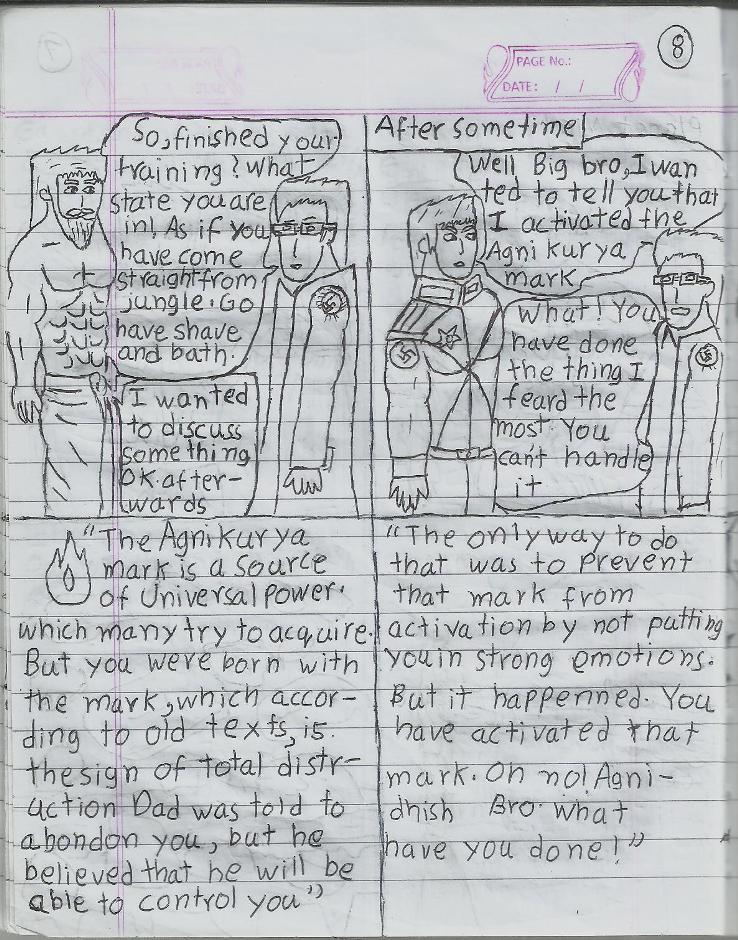 8
PAGE No.:
DATE: / /
So, finished your
training? What
state you are
in! As if you
have come
straight from
jungle. Go
have shave
and bath.
I wanted
to discuss
something
OK after-
wards
After sometime
Well Big bro, I wan
ted to tell you that
I activated the
Agni kurya
mark
What! You
have done
the thing I
feard the
most. You
can't handle
it
"The Agnikurya
mark is a source
of Universal power.
which many try to acquire.
But you were born with
the mark, which accor-
ding to old texts, is
the sign of total distr-
uction Dad was told to
abondon you, but he
believed that he will be
able to control you"
"The only way to do
that was to prevent
that mark from
activation by not putting
you in strong emotions.
But it happenned. You
have activated that
mark. Oh no! Agni-
dhish Bro. what
have you done!"